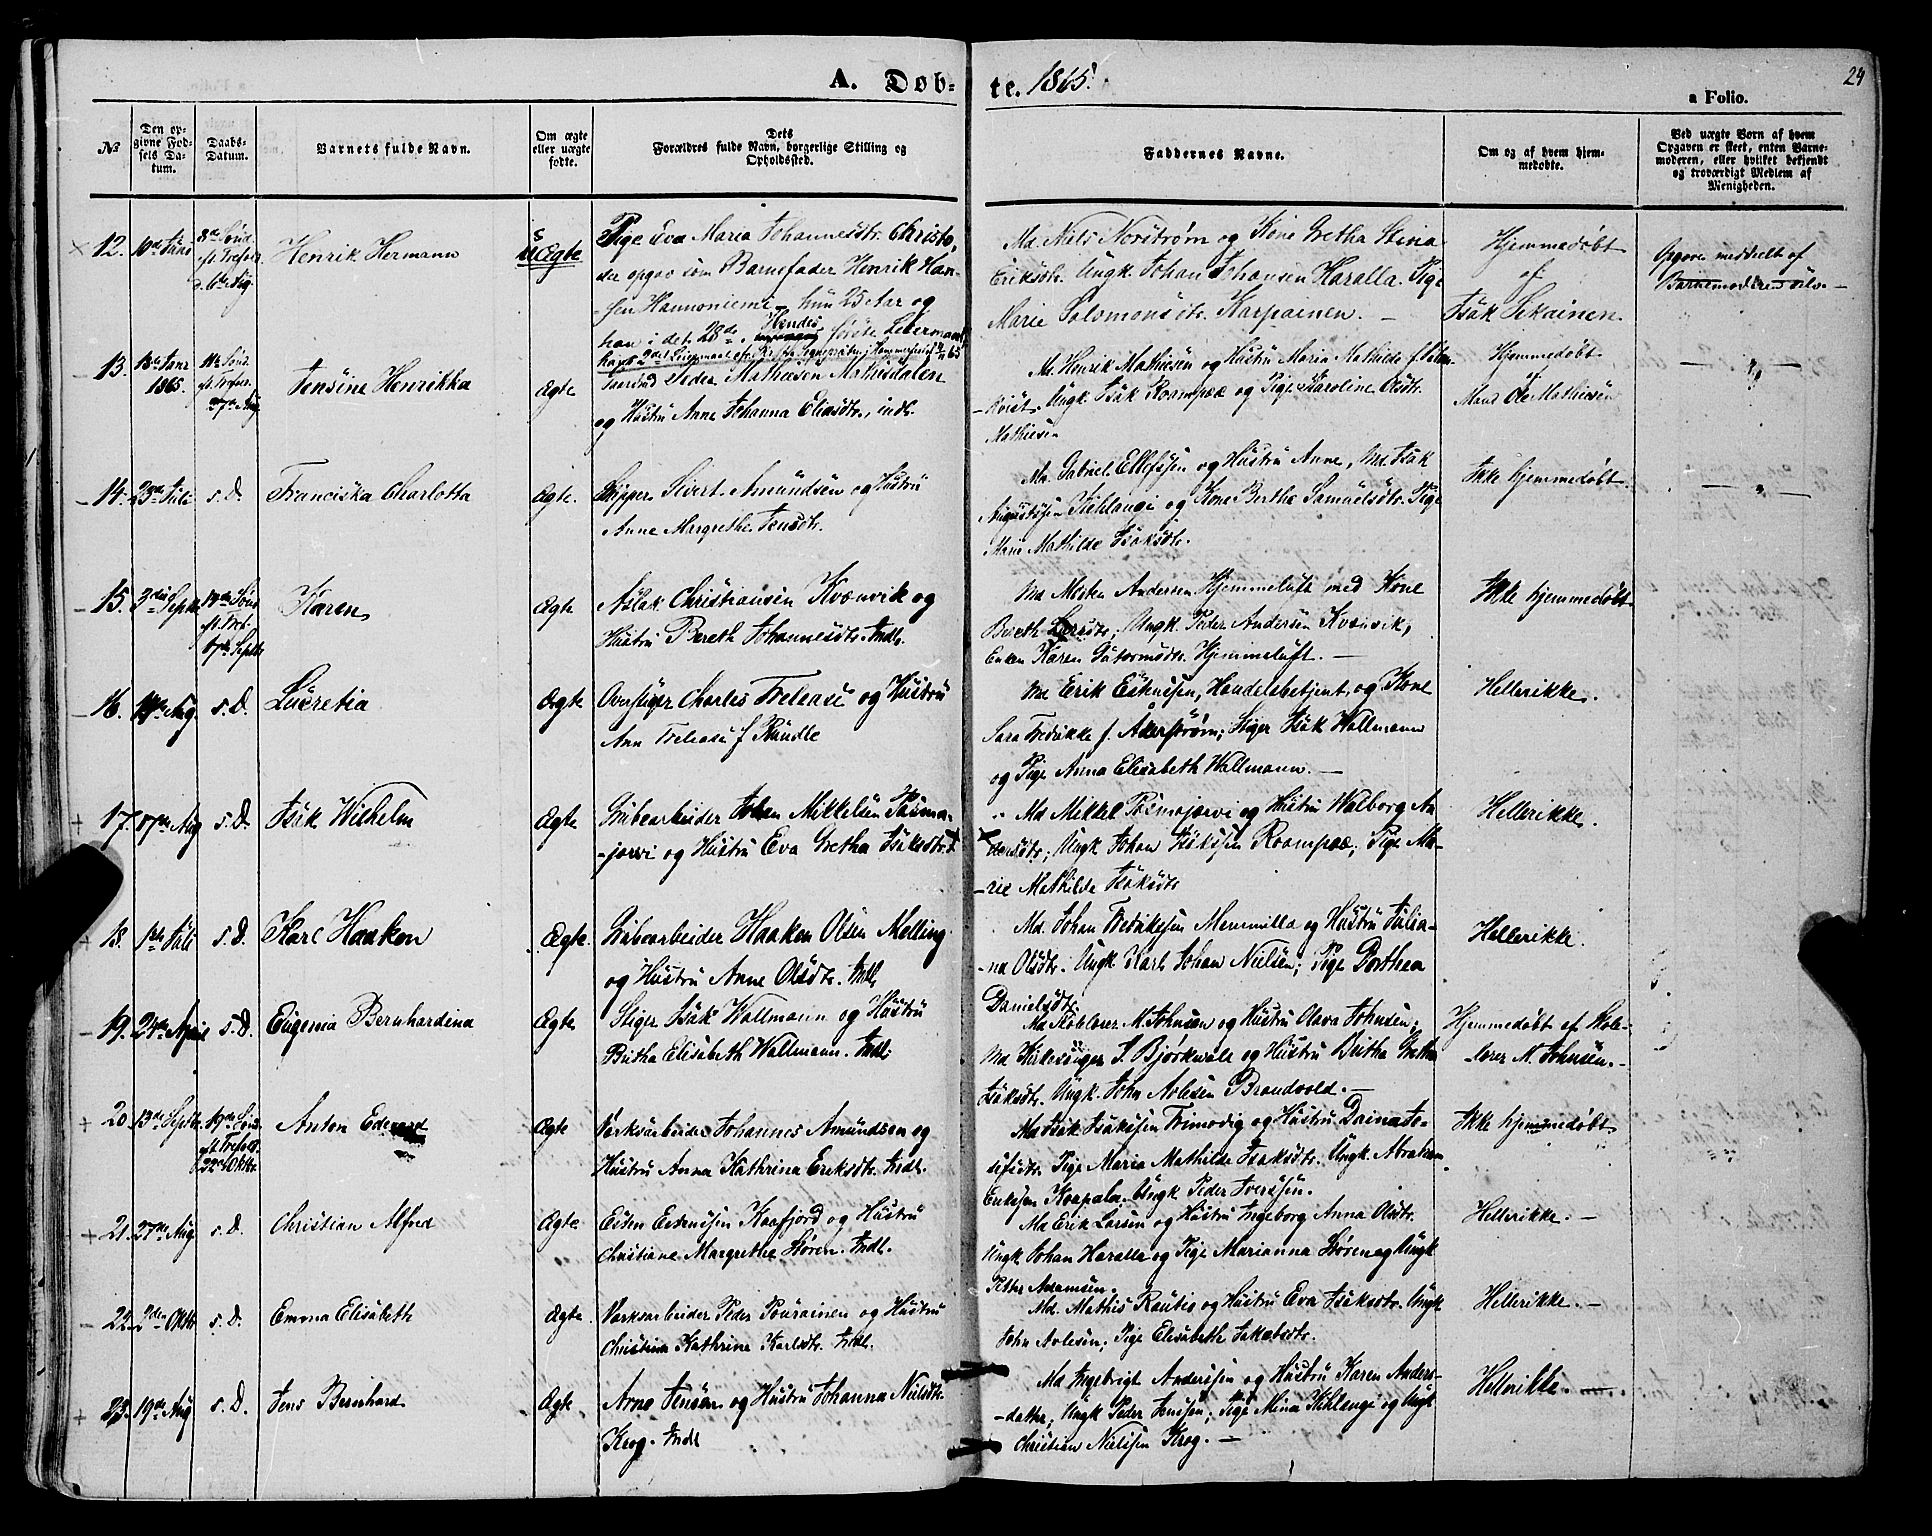 A. Døb-te. 1865.
24
a Folio.
No
Den opgivne Fødsels Datum.
Daabs-Datum.
Barnets fulde Navn.
Om ægte eller uægte fødte.
Dets Forældres fulde Navn, borgerlige Stilling og Opholdssted.
Faddernes Navne.
Om og af hvem hjemmedøbte.
Ved uægte Børn af hvem Opgaven er skeet, enten Barnemoderen, eller hvilket bekjendt og troværdigt Medlem af Menigheden.
12.
Henrik Hermann
uÆgte
Pige Eva Maria Johannesdtr. Christo,
der opgav som Barnefader Henrik Han-
sen Hannoniemi hun 25 Aar og
han i det 28de. Hendes første Leiermaal,
Md. Niels Norström og Kone Gretha Stina
Eriksdtr. Ungk. Johan Johansen Karalla. Pige
Marie Salomonsdtr. Karpainen. –
Hjemmedøbt
af
Isak Sekainen.
Opgave meddeelt af
Barnemoderen selv. –
13.
1865.
Jensine Henrikka
Ægte
Peder Mathiesen Mathisdalen
og Hustru Anne Johanna Eliasdtr., indl.
Md. Henrik Mathiesen og Hustru Maria Mathilde f.
-kvist. Ungk. Isak Roampææ og Pige Karoline Olsdtr.
Mathiesen
Hjemmedøbt
af
Mand Ole Mathiesen
14. 23de Juli
s. D.
Franciska Charlotta
Ægte.
Skipper Sivert Amundsen og Hustru
Anne Margrethe Jensdtr.
Md. Gabriel Ellefsen og Hustru Anne, Md. Isak
Augustsen Kihlangi og Kone Bertha Samuelsdtr. Pige
Marie Mathilde Isaksdtr.
Ikke hjemmedøbt.
15. 3die Septbr.
17de Septbr.
Karen
Ægte
Aslak Christiansen Kvænvik og
Hustru Bereth Johannesdtr. Indl.
Md Morten Andersen Hjemmeluft med Kone
Bereth Larsdtr; Ungk. Peder Andersen Kvænvik;
Enken Karen Guttormsdtr. Hjemmeluft. –
Ikke hjemmedøbt.
16.
s. D.
Lucretia
Ægte
Overstiger Charles Trelease og Hustru
Ann Trelease f Rundle
Md Erik Esknsen, Handelsbetjent, og Kone
Sara Fredrikke f. Åkerström; Stiger Isak Wallmann
og Pige Anna Elisabeth Wallmann. –
Hellerikke.
17. 17de Aug
s. D.
Isak Wilhelm
Ægte
Grubearbeider Johan Mikkelsen Pasma-
-jarvi og Hustru Eva Gretha Isaksdtr.
Md Mikkel Pasmajarvi og Hustru Walborg An-
dersdtr; Ungk. Johan Isaksen Roampææ; Pige Ma-
-rie Mathilde Isaksdtr
Hellerikke.
18. 1ste Juli
s. D.
Karl Haakon
Ægte.
Grubearbeider Haakon Olsen Melling
og Hustru Anne Olsdtr. Indl.
Md. Johan Fredriksen Memmilla og Hustru Julia-
-na Olsdtr. Ungk. Karl Johan Nielsen; Pige Dorthea
Danielsdtr.
Hellerikke.
19. 24de April
s. D.
Eugenia Bernhardina
Ægte
Stiger Isak Wallmann og Hustru
Britha Elisabeth Wallmann. Indl.
Md Skolelærer M. Johnsen og Hustru Olava Johnsen;
Md Kirkesanger I. Bjørkwale og Hustru Britha Gretha
Isaksdtr. Ungk. John Avlesen Brandvold. –
Hjemmedøbt af Skole-
lærer M. Johnsen. –
20. 13de Septbr.
19de Sønd.
22de Oktbr.
Anton Edevart
Ægte
Værksarbeider Johannes Amundsen og
Hustru Anna Kathrina Eriksdtr. Indl.
Md Isak Isaksen Frimodig og Hustru Daina Jo-
sefsdtr. Pige Maria Mathilde Isaksdtr. Ungk. Abraham
Eriksen Koapala. Ungk Peder Iversen.
Ikke hjemmedøbt
21. 27de Aug
s. D.
Christian Alfred
Ægte
Esten Estensen Kaafjord og Hustru
Christiane Margrethe Støren. Indl.
Md Erik Larsen og Hustru Ingeborg Anna Olsdtr.
Ungk Johan Haralla og Pige Marianna Støren og Ungk
Petter Adamsen.
Hellerikke. –
22. 2den Oktbr
s. D.
Emma Elisabeth
Ægte
Værksarbeider Peder Pourainen og Hustru
Christina Kathrine Karlsdtr. Indl.
Md. Mathis Rautio og Hustru Eva Isaksdtr. Ungk
John Avlesen; Pige Elisabeth Jakobsdtr.
Hellerikke. –
23. 19de Aug
s. D.
Jens Bernhard
Ægte
Arne Jensen og Hustru Johanna Nielsdtr.
Krog. Indl
Md Ingebrigt Andersen og Hustru Karen Anders-
-datter; Ungk. Peder Jensen; Pige Mina Kihlangi og Ungk
Christian Nielsen Krog. –
Hellerikke. –